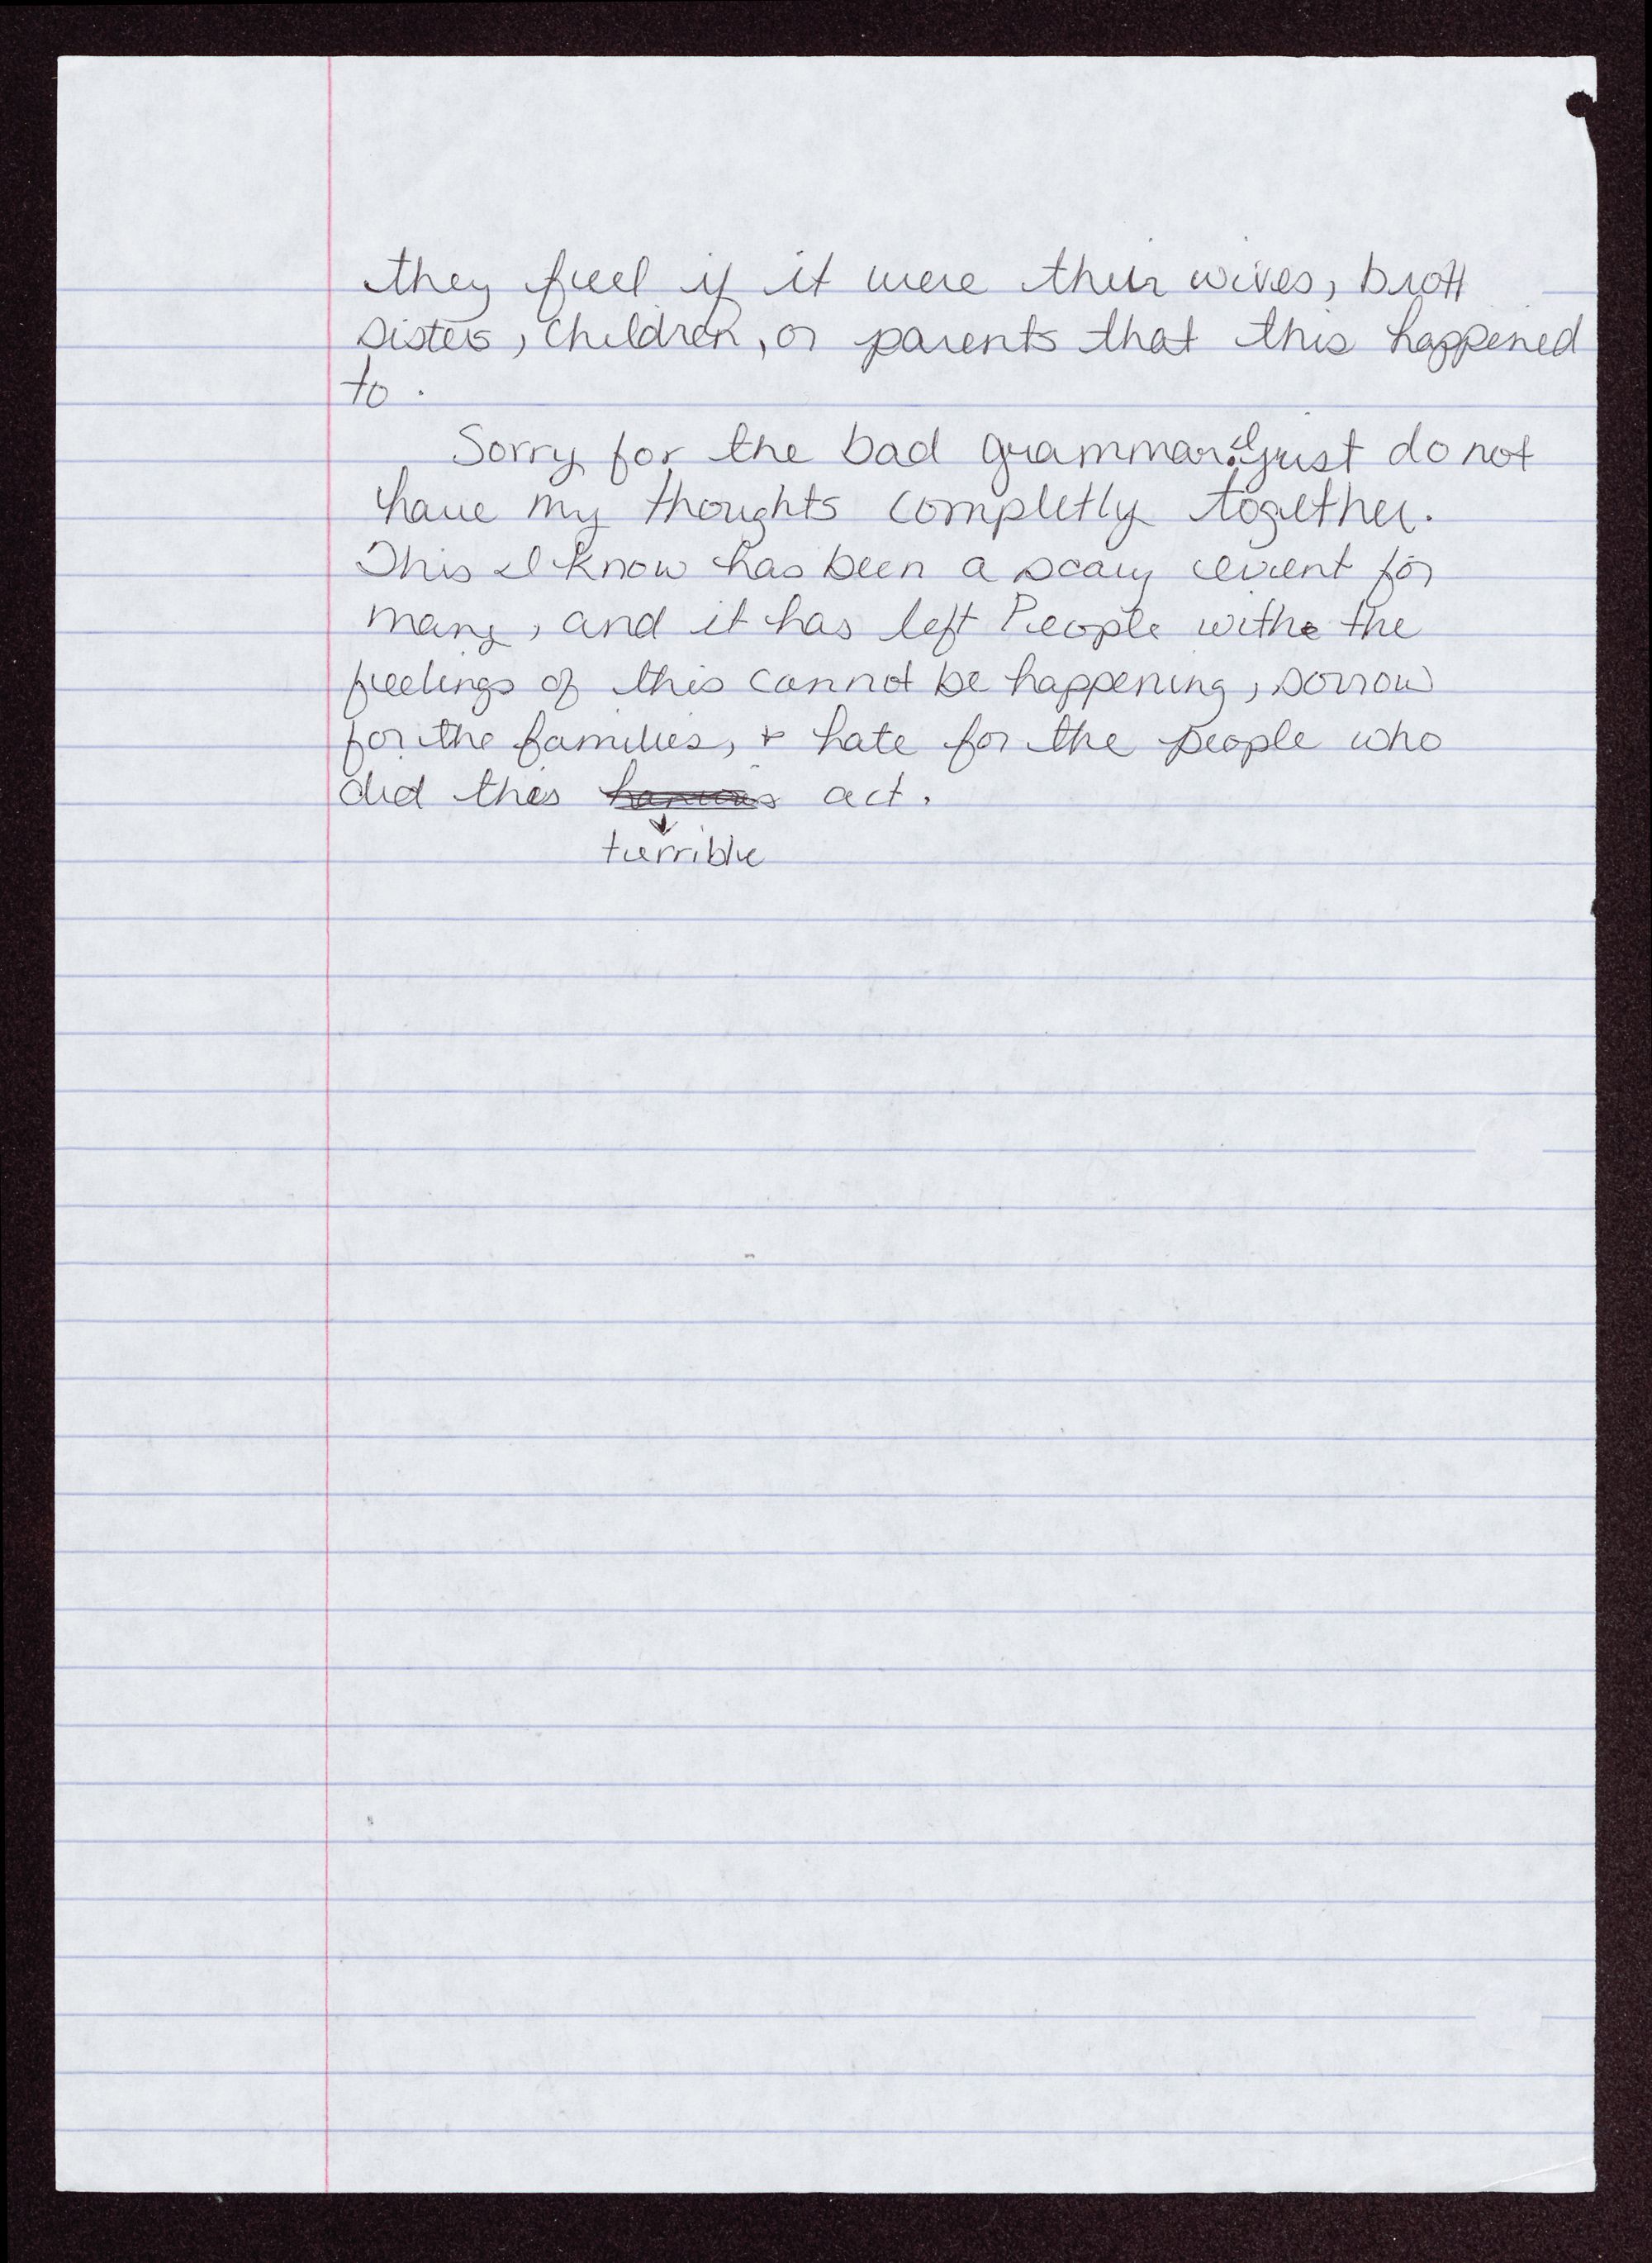 they feel if it were their wives, brott
sisters, children, or parents that this happened
to.
Sorry for the bad grammar. I just do not
have my thoughts completly together.
This I know has been a scary event for
many, and it has left People with the
feelings of this cannot be happening, sorrow
for the families, + hate for the people who
did this act.
terrible